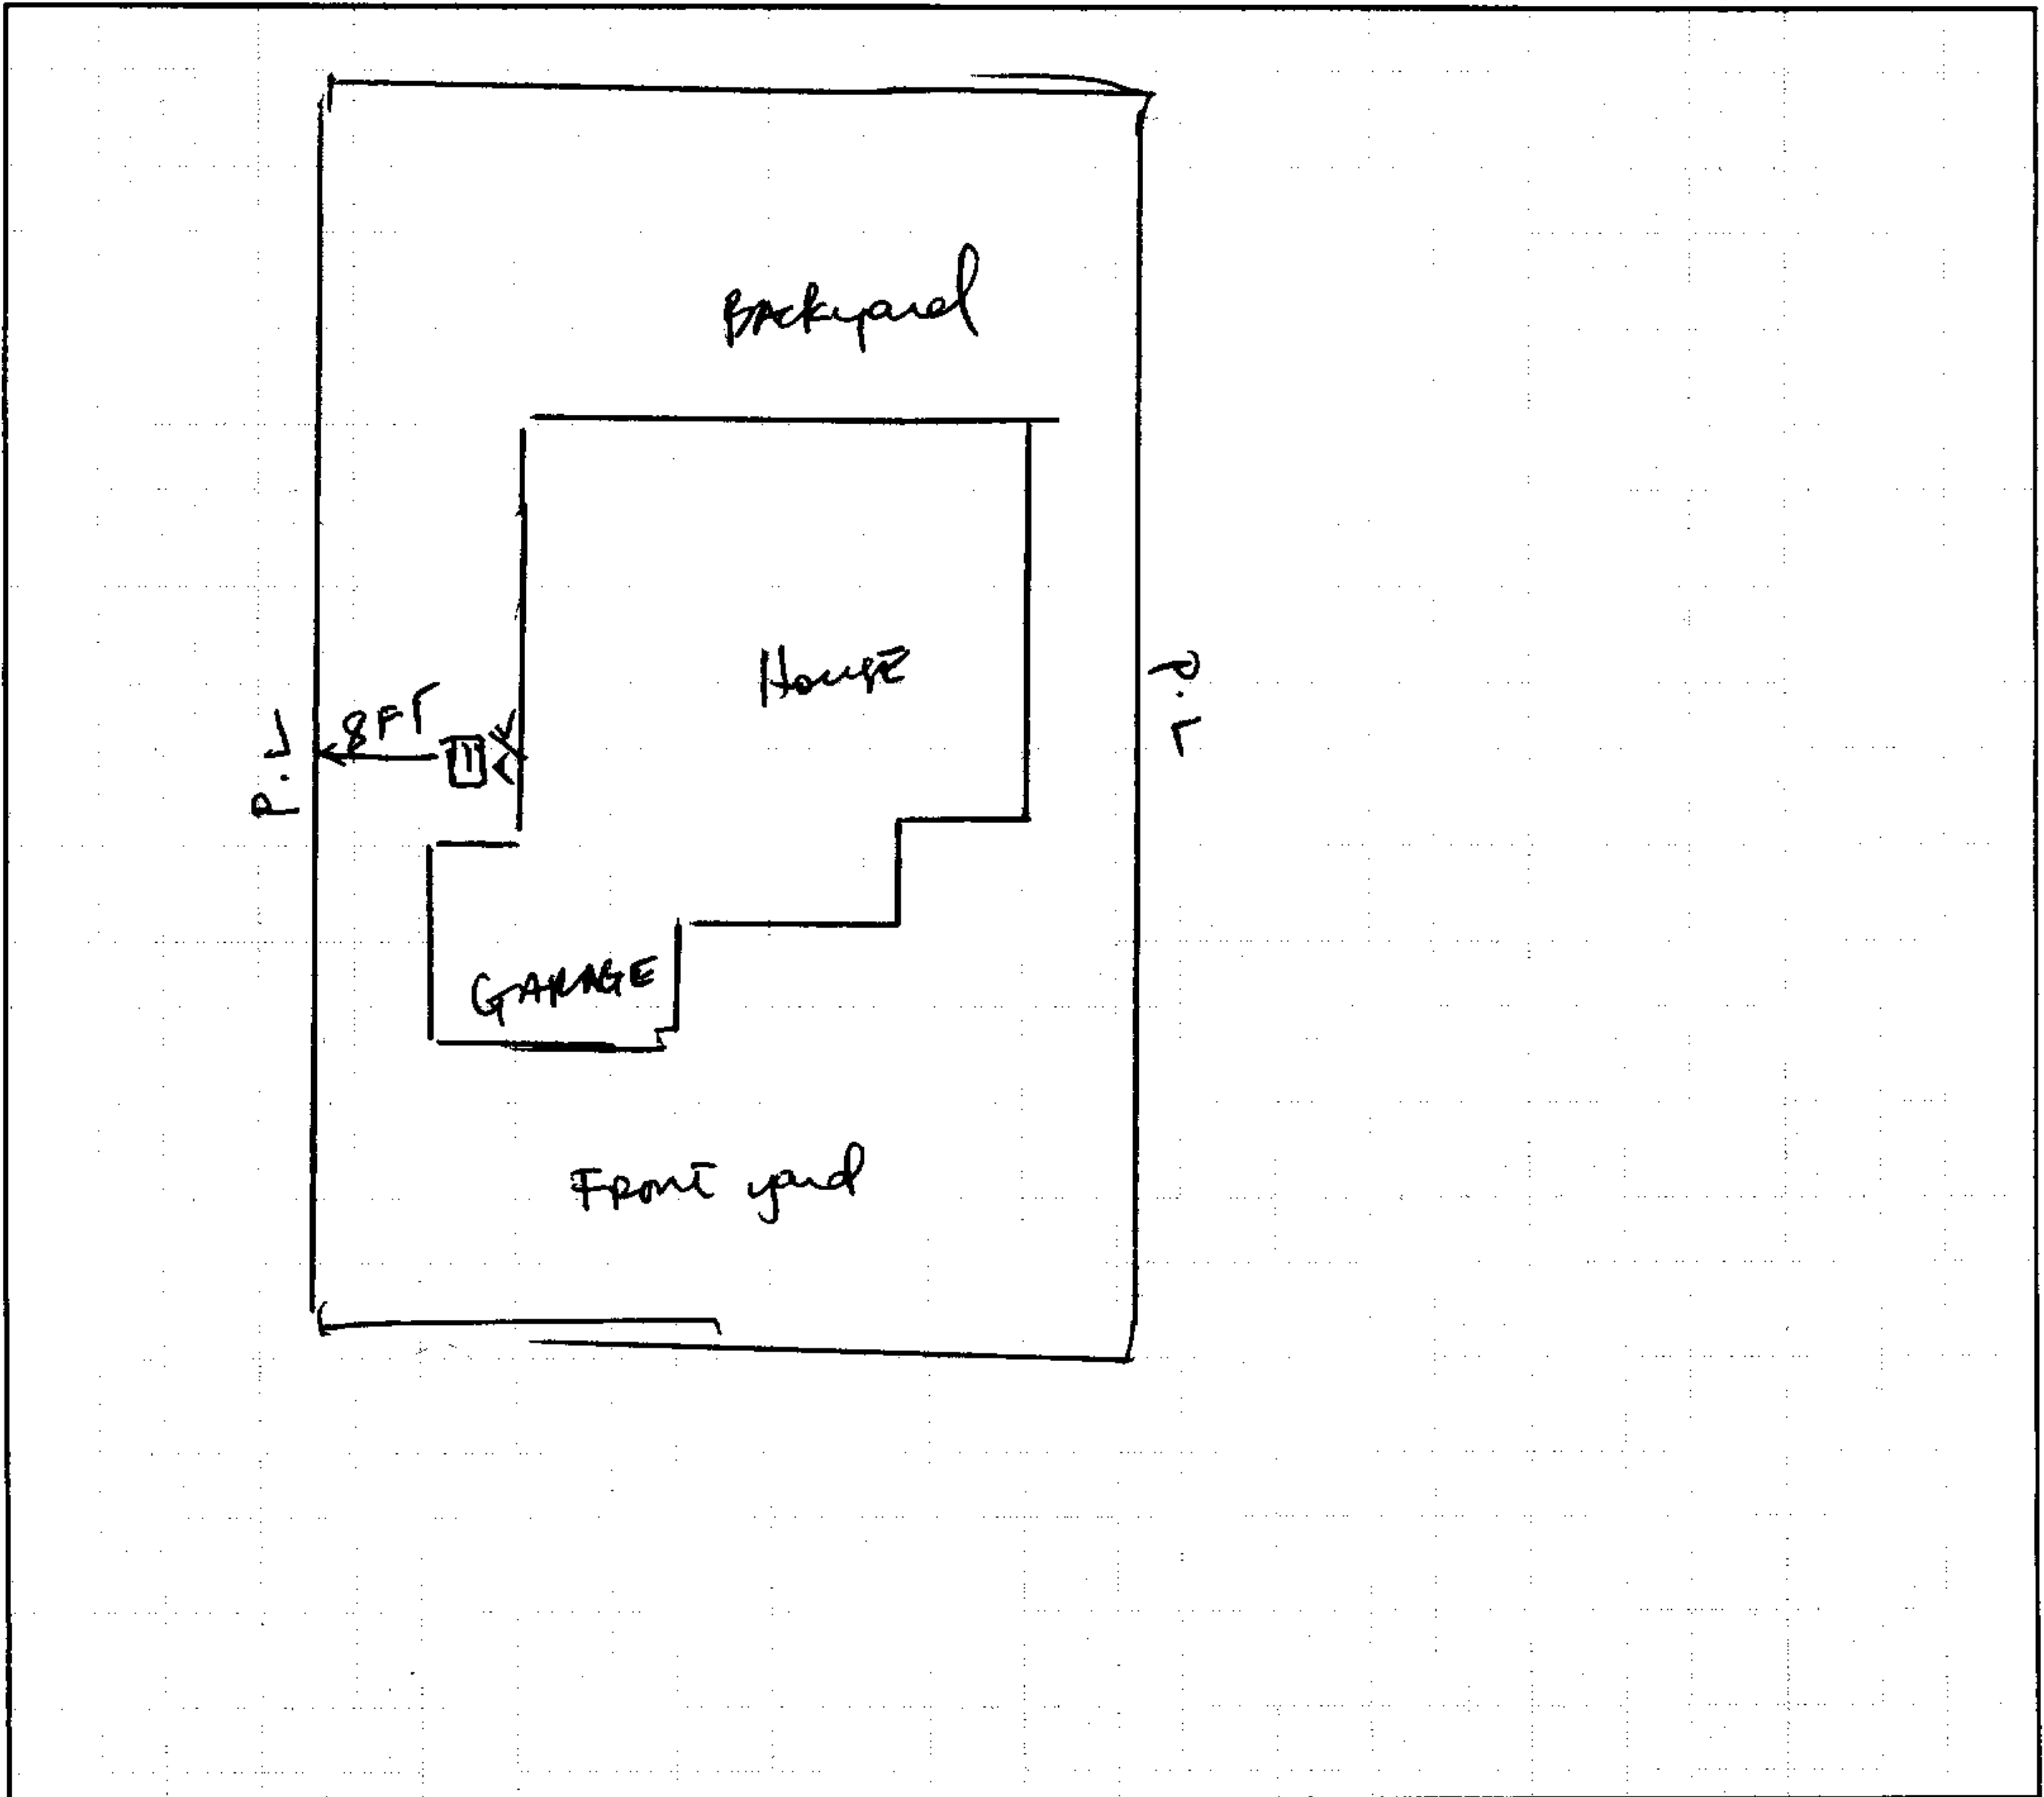 Backyard
House
8FT
P.L
P.L
GARAGE
Front yard